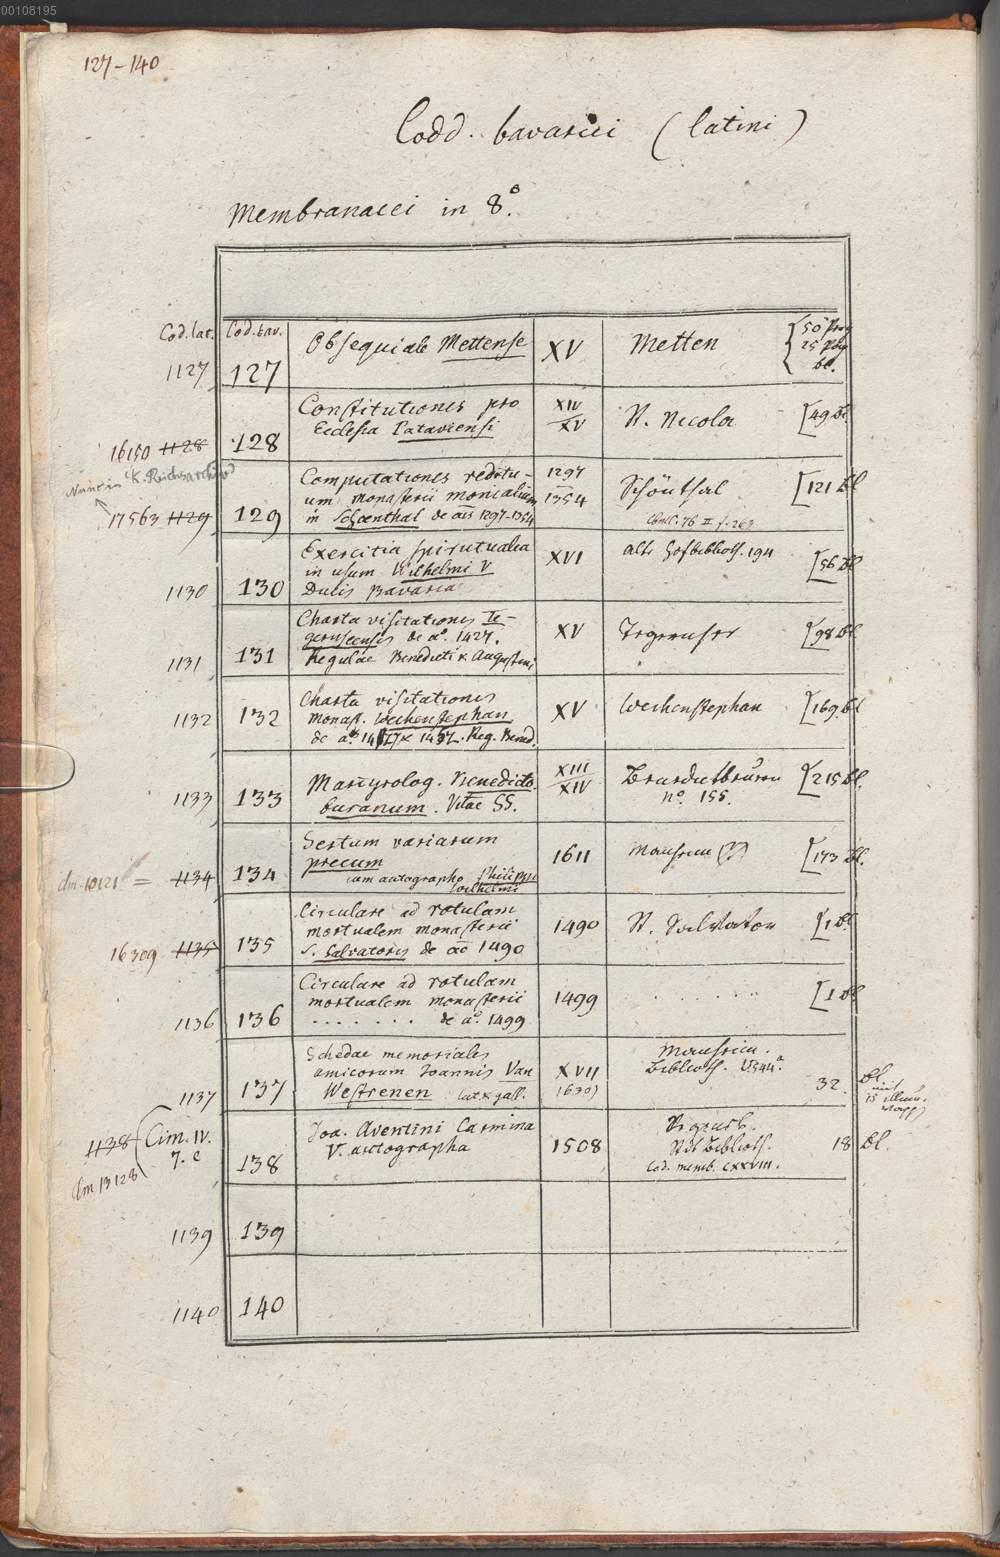 00108195
127-140
Codd. bavarici (latini)
Membranacei in 8º.
Cod. lat. Cod. bav.
1127 127 Obsequiale Mettense XV Metten 50 Perg
25 Pap
bl.
16150 1128 128 Constitutiones pro
Ecclesia Pataviensi XIV
XV St. Nicola 49 Bl.
Nunc in K. Reichsarchiv
17563 1129 129 Computationes reditu-
um monasterii monialium
in Schoenthal de ais 1297-1354 1297
1354 Schönthal 121 Bl
1130 130 Exercitia spiritualia
in usum Wilhelmi V
Ducis Bavaria XVI alte Hofbiblioth. 194 56 Bl
1131 131 Charta visitationis Te-
gernseensis de aº. 1427.
Regulae Benedicti & Augustini XV Tegernsee 98 Bl.
1132 132 Charta visitationis
Monast. Weihenstephan
de aº. & 1452. Reg. Bened. XV Weihenstephan 169. bl
1133 133 Martyrolog. Benedicto
buranum. Vitae SS. XIII
XIV Benedictbeuern
nº. 155. 215 Bl.
clm 10121 = 1134 134 Sertum variarum
precum
cum autographo Philippi
Wilhelmi 1611 Mannheim (?) 173 Bl.
16309 1135 135 Circulare ad rotulam
mortualem monasterii
S. Salvatoris de aº 1490 1490 St. Salvator 1 Bl.
1136 136 Circulare ad rotulam
mortualem monasterii
. . . . . . . de aº. 1499 1499 . . . . . . . 1 Bl
1137 137 Schedae memoriales
amicorum Joannis Van
Westrenen lat & gall. XVII
1630) Mannheim.
Biblioth. 32. Bl.
mit
15 illum.
Wapp)
1138 Cim. IV.
7. e
clm 13128 138 Joa. Aventini Carmina
V. autographa 1508 Regensb.
Stdt Biblioth.
Cod. memb. CXXVIII. 18 Bl.
1139 139
1140 140